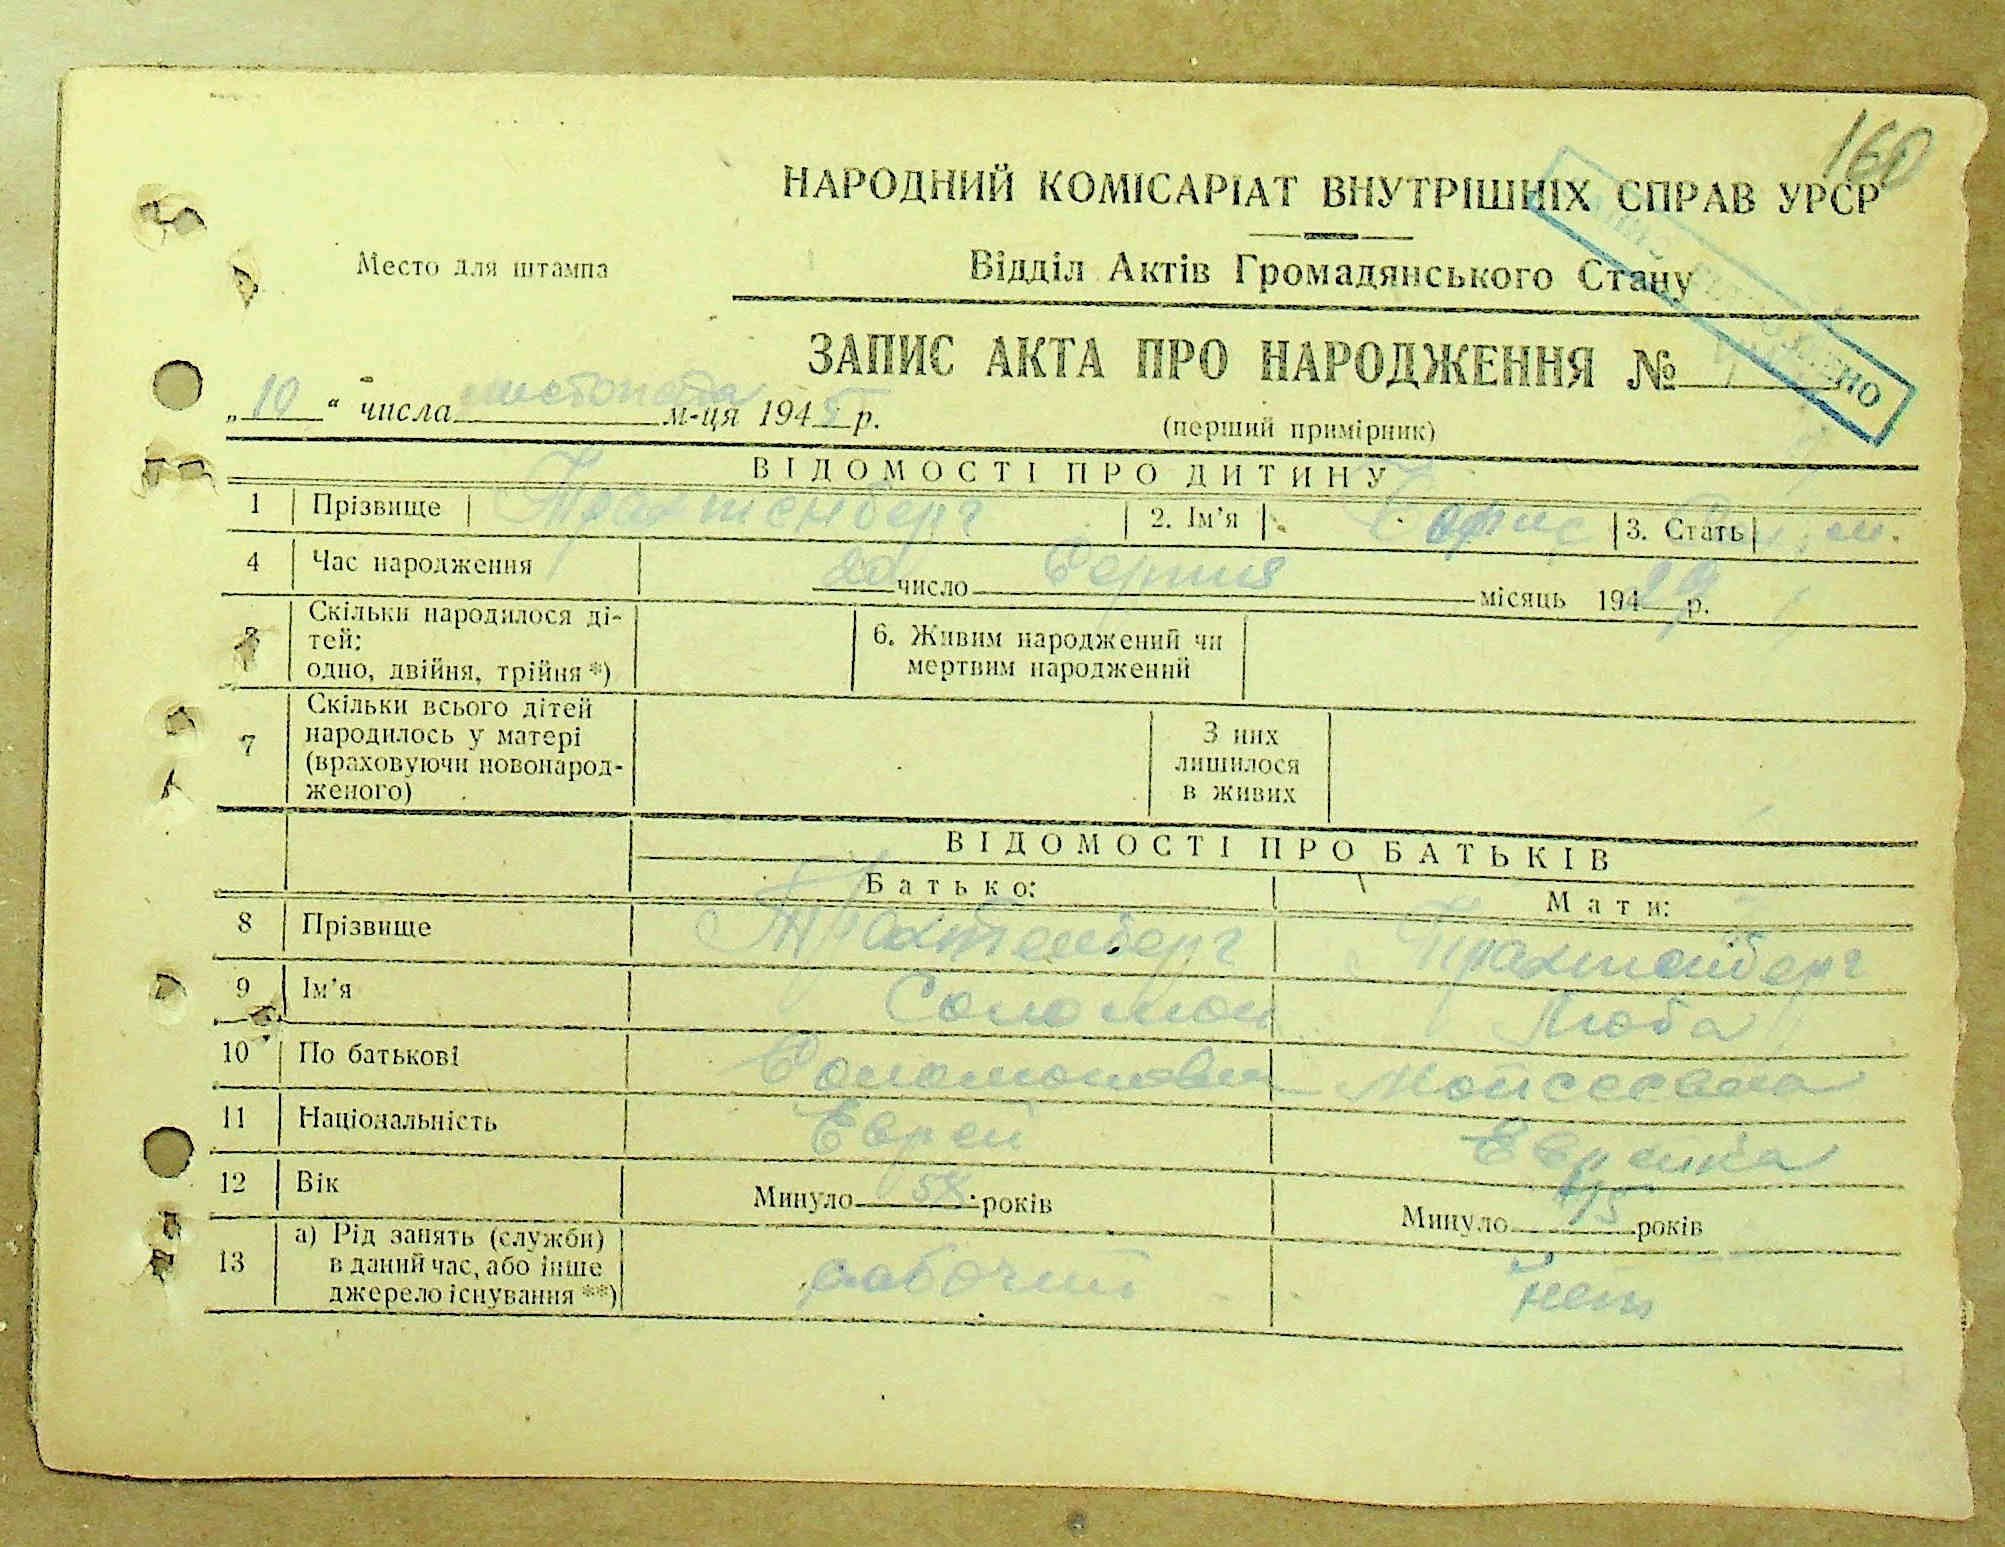 160
НАРОДНИЙ КОМІСАРІАТ ВНУТРІШНІХ СПРАВ УРСР
Место для штампа
Відділ Актів Громадянського Стану
ЗАПИС АКТА ПРО НАРОДЖЕННЯ №
„10“ числа листопада м-ця 1945 р.
(перший примірник)
ВІДОМОСТІ ПРО ДИТИНУ
1 Прізвище Трахтенберг 2. Ім'я Борис 3. Стать
4 Час народження 20 число Серпня місяць 194 р.
Скільки народилося ді-
тей:
одно, двійня, трійня *)
6. Живим народжений чи
мертвим народжений
7 Скільки всього дітей
народилось у матері
(враховуючи новонарод-
женого)
З них
лишилося
в живих
ВІДОМОСТІ ПРО БАТЬКІВ
Батько: Мати:
8 Прізвище Трахтенберг Трахтенберг
9 Ім'я Соломон Люба
10 По батькові Соломонович Мойсеевна
11 Національність Еврей Еврейка
12 Вік Минуло 54 років Минуло 45 років
13 а) Рід занять (служби)
в даний час, або інше
джерело існування **)
рабочий нет